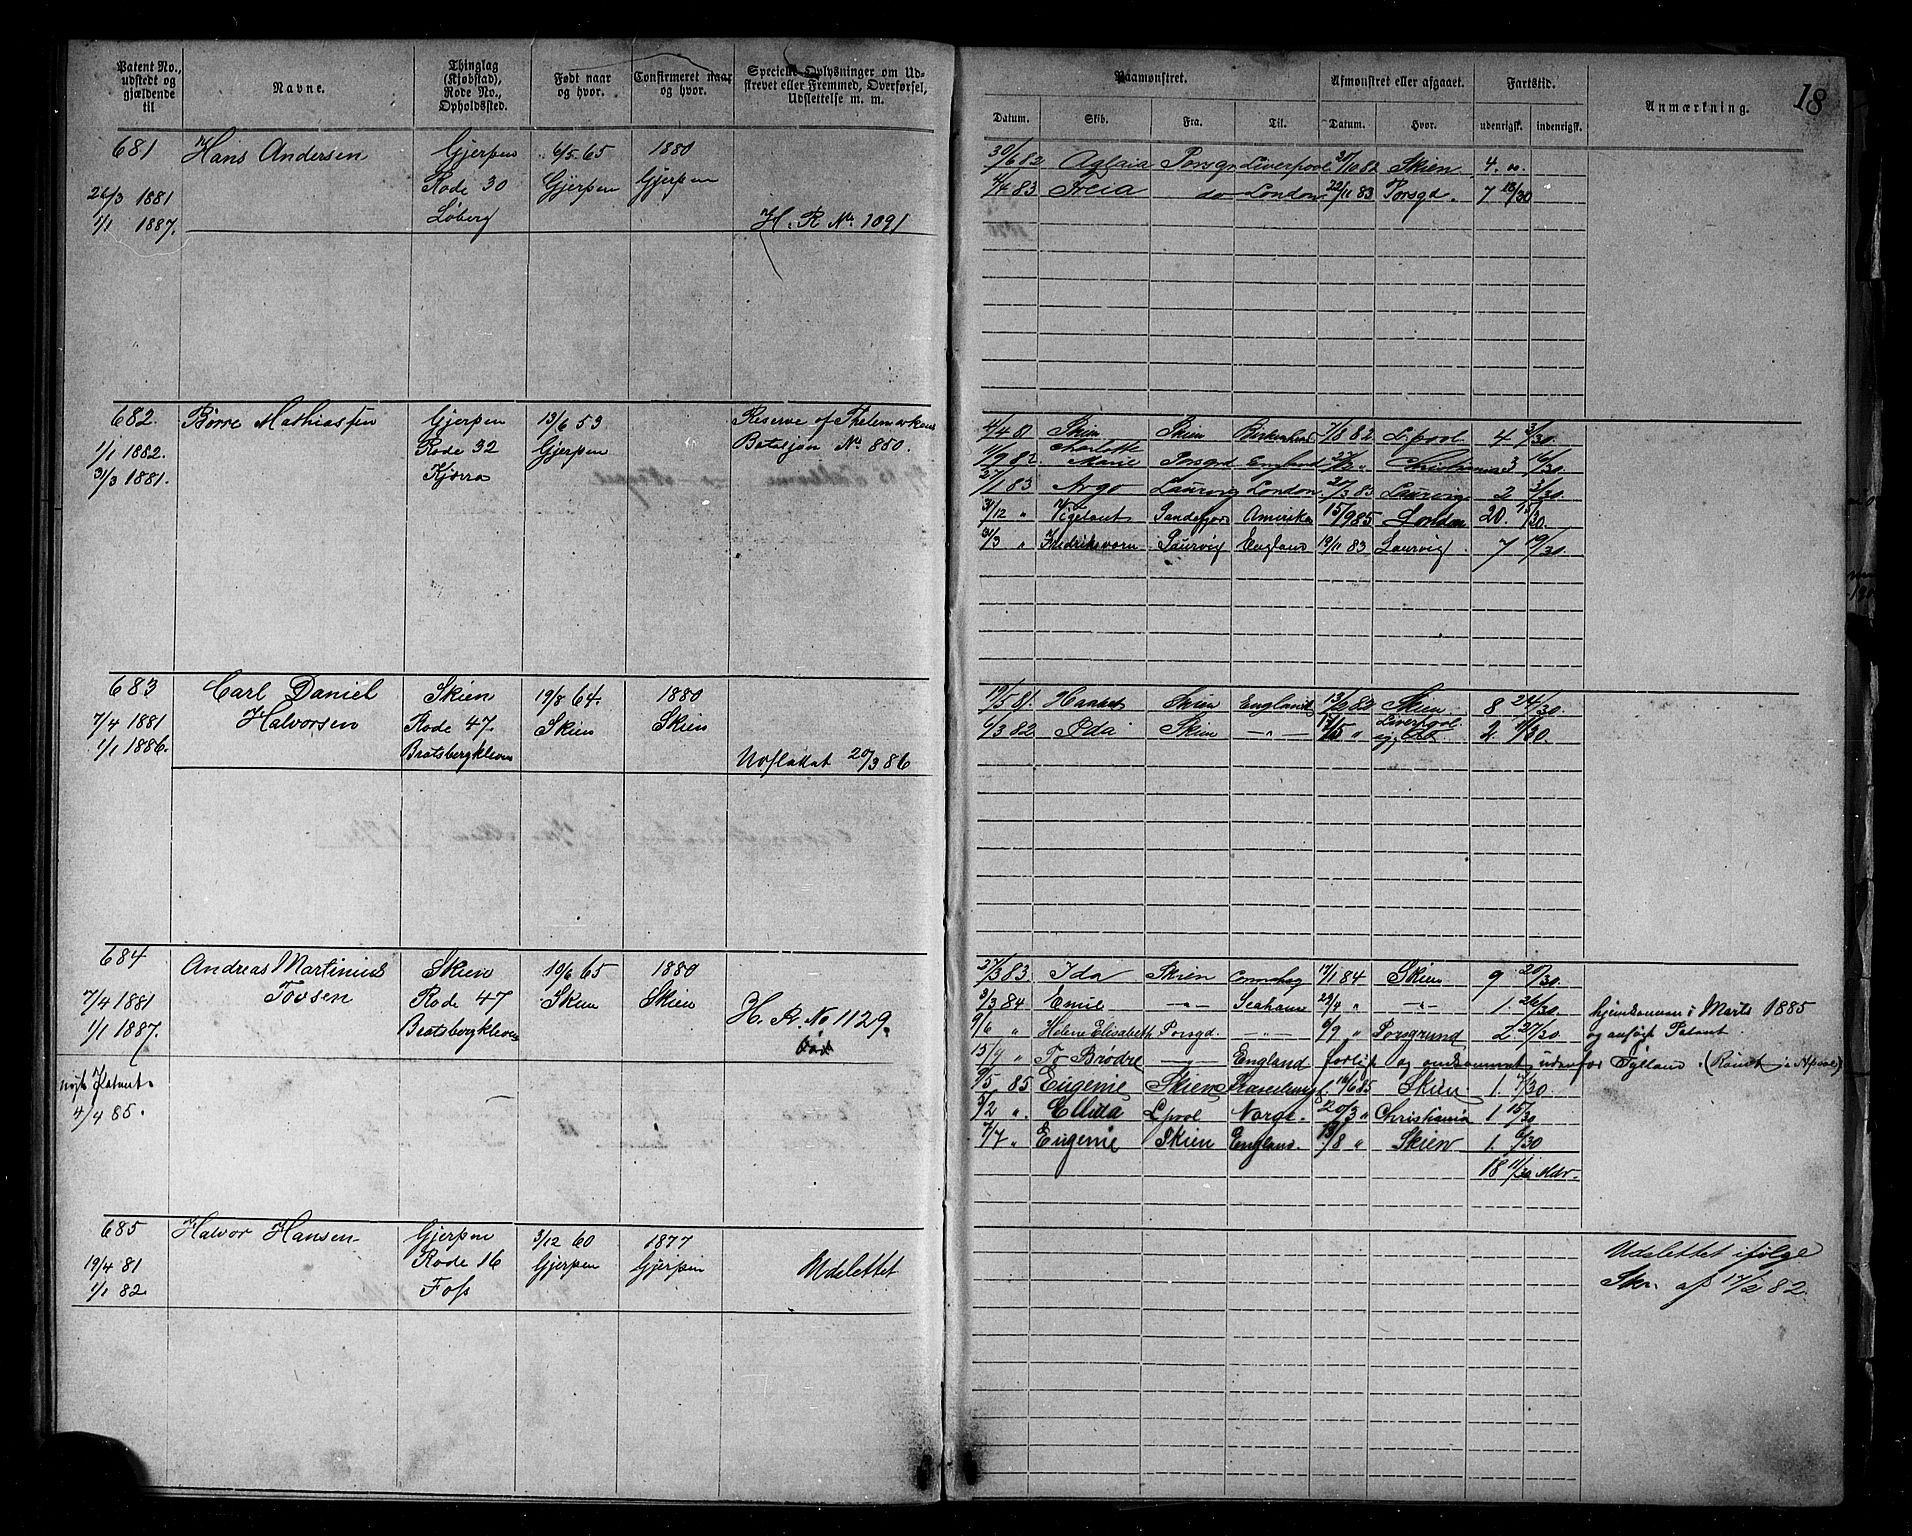 18
Patent No., udstedt og gjældende til
Navne.
Thinglag (Kjøbstad), Rode No., Opholdssted.
Født naar og hvor.
Confirmeret naar og hvor.
Specielle Oplysninger om Udstrevet eller Fremmed, Overførsel, Udslettelse m. m.
Paamønstret.
Afmønstret eller afgaaet.
Fartstid.
Anmærkning.
Datum. Skib. Fra. Til. Datum. Hvor. udenrigsk. indenrigsk.
681 Hans Andersen Gjerpen 6/5 65 1880
26/3 1881 Rode 30 Gjerpen Gjerpen
1/1 1887. Løberg H. R. No. 1091
30/6 82 Aglaia Porsgr Liverpool 27/10 82 Skien 4. "
4/4 83 Freia do London 22/11 83 Porsgd. 7 18/30
682. Børre Mathiassen Gjerpen 13/6 53 Reserve af Thelemarkens
1/1 1882. Rode 32 Gjerpen Bataljon No. 850.
31/3 1881. Kjørra
4/4 81 Skien Skien Birkenhead 7/8 82 L.pool 4 3/30
1/9 82 Charlotte Marie Porsgrd England Christiania 3 16/30
27/1 83 Argo Laurvig London 20/3 83 Laurvig 2 3/30
31/12 " Vigelant Sandefjord Amerika 15/9 85 London 20.
31/3 " Fredriksværn Laurvig England 19/11 83 Laurvig 7 19/30
683 Carl Daniel Skien 19/8 64. 1880
7/4 1881 Halvorsen Rode 47. Skien Skien
1/1 1886. Bratsbergkleven Udslettet 20/3 86
19/5 81. Skien England 13/2 82 Skien 8 24/30
6/3 82 Oda Skien —"— 15/5 " Liverpool 2
684 Andreas Martinius Skien 10/6 65 1880
7/4 1881 Tovsen Rode 47 Skien Skien
1/1 1887. Bratsbergkleven H. R. No 1129.
nyt Patent
4/4 85.
27/3 83. Ida Skien 17/1 84 Skien 9 20/30
3/3 84 Emil —"— Seaham 29/4 " —"— 1. 26/30 hjemkommen i Marts 1885
9/6 " Helene Elisabeth Porsgd. —"— 6/9 " Porsgrund 2. 27/30 og ansøgt Patent.
15/9 " To Brødre —"— England forlist og omkommet udenfor Jylland.
9/5 85 Eugenie Skien 16/6 85 Skien 1. 7/30
5/2 ". Ellida L.pool Norge. 20/3 " Christiania 1. 15/30
7/7 " Eugenie Skien England. 13/8 " Skien 1. 6/30
18 11/30 Mdr.
685 Halvor Hansen Gjerpen 3/12 60 1877
19/4 81 Rode 16 Gjerpen Gjerpen Udslettet
1/1 82. Foss
Udslettet ifølge
Skr. af 17/2 82.